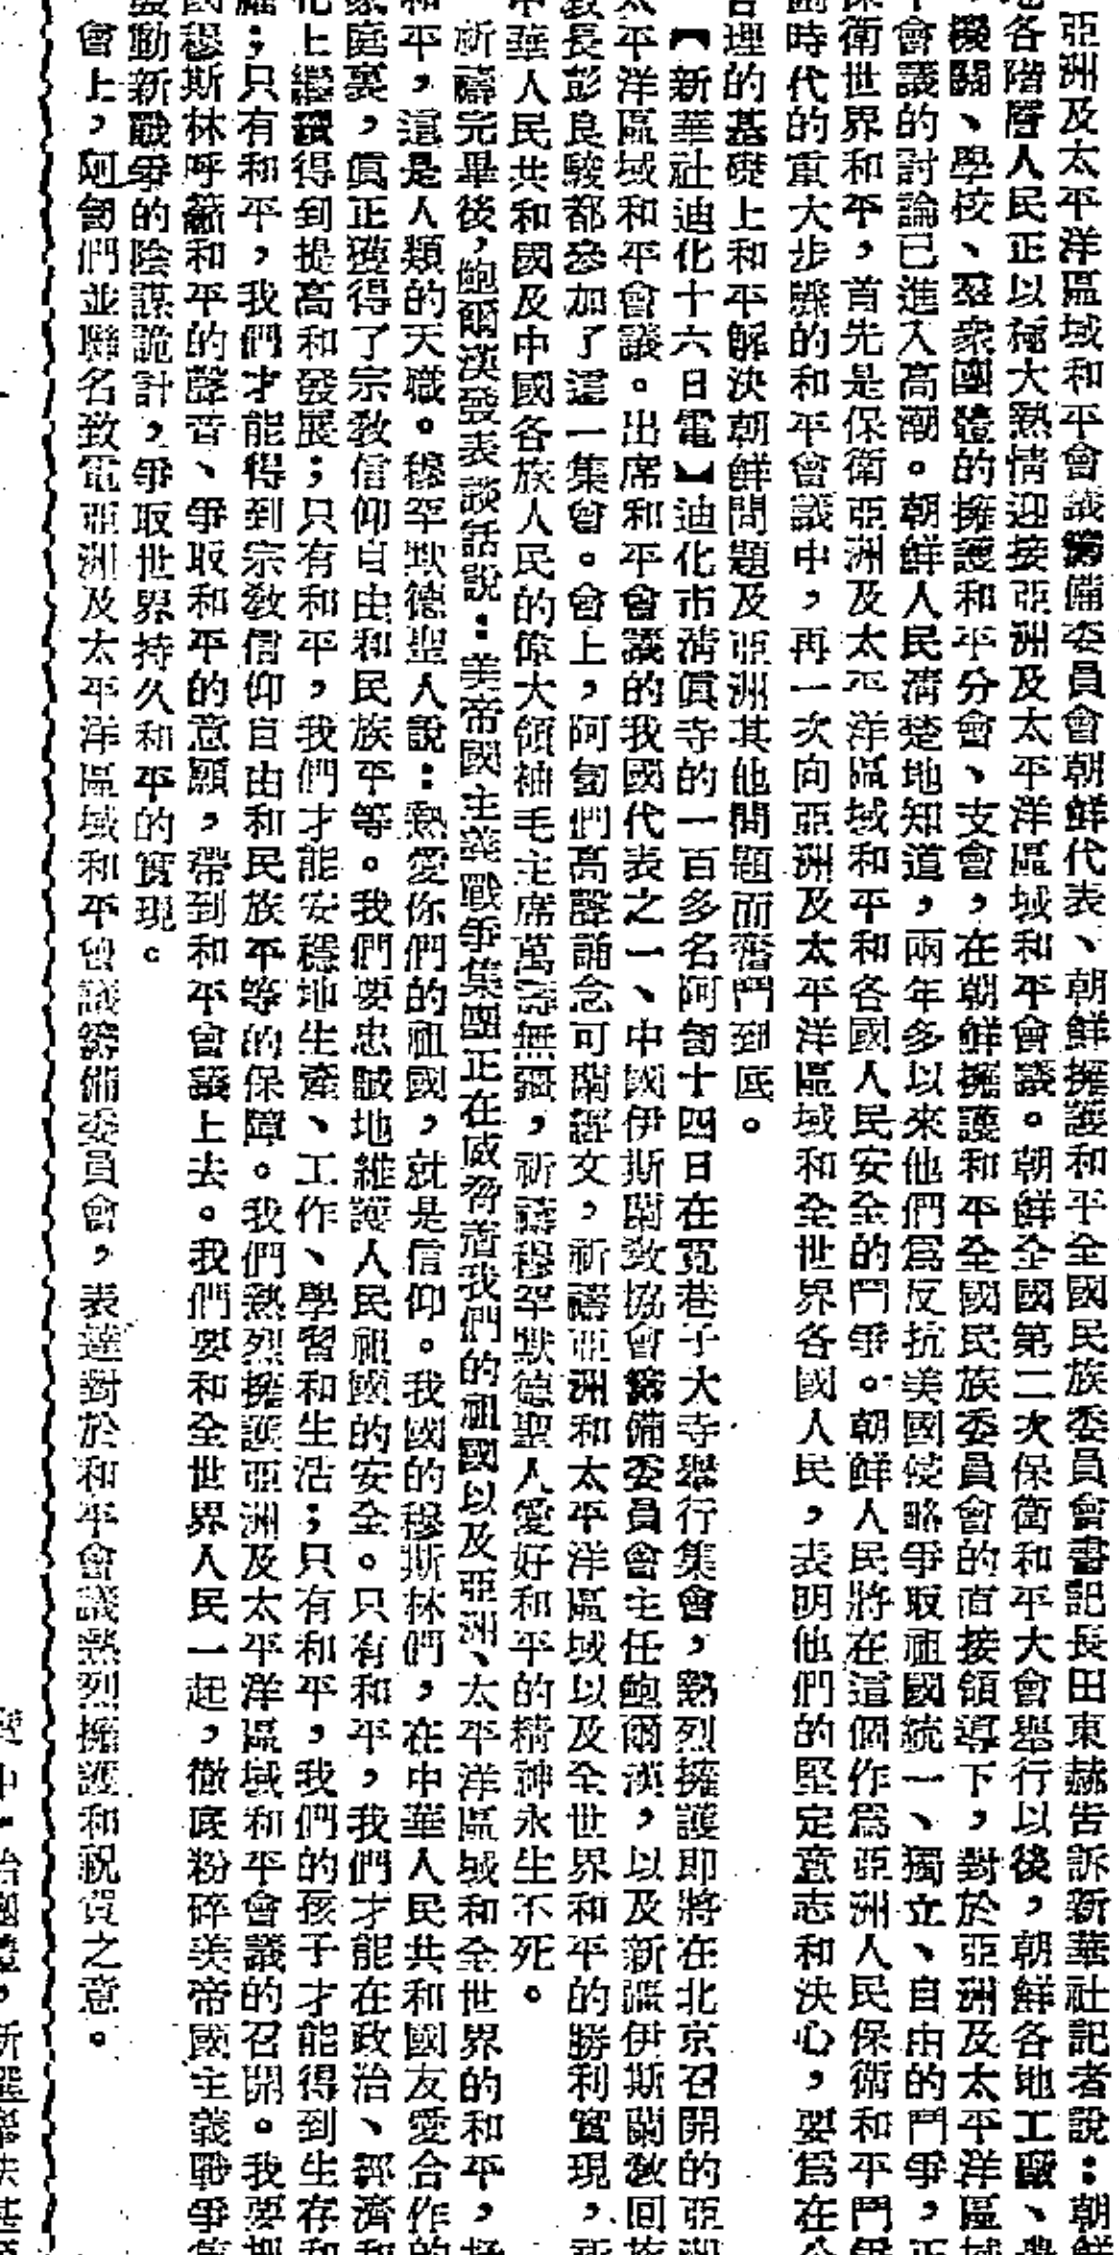 亞洲及太平洋區域和平會議籌備委員會朝鮮代表、朝鮮擁護和平全國民族委員會書記長田東赫告訴新華社記者說：朝鮮
各階層人民正以極大熱情迎接亞洲及太平洋區域和平會議。朝鮮全國第二次保衛和平大會舉行以後，朝鮮各地工廠、農
機關、學校、羣衆團體的擁護和平分會、支會，在朝鮮擁護和平全國民族委員會的直接領導下，對於亞洲及太平洋區域
會議的討論已進入高潮。朝鮮人民淸楚地知道，兩年多以來他們爲反抗美國侵略爭取祖國統一、獨立、自由的鬥爭，正
保衛世界和平，首先是保衛亞洲及太平洋區域和平和各國人民安全的鬥爭。朝鮮人民將在這個作爲亞洲人民保衛和平鬥爭
時代的重大步驟的和平會議中，再一次向亞洲及太平洋區域和全世界各國人民，表明他們的堅定意志和決心，要爲在公
理的基礎上和平解決朝鮮問題及亞洲其他問題而奮鬥到底。
【新華社迪化十六日電】迪化市淸眞寺的一百多名阿訇十四日在寬巷子大寺舉行集會，熱烈擁護即將在北京召開的亞洲
太平洋區域和平會議。出席和平會議的我國代表之一、中國伊斯蘭敎協會籌備委員會主任鮑爾漢，以及新疆伊斯蘭敎回族
敎長彭良駿都參加了這一集會。會上，阿訇們高聲誦念可蘭經文，祈禱亞洲和太平洋區域以及全世界和平的勝利實現，祈
中華人民共和國及中國各族人民的偉大領袖毛主席萬壽無疆，祈禱穆罕默德聖人愛好和平的精神永生不死。
祈禱完畢後，鮑爾漢發表談話說：美帝國主義戰爭集團正在威脅着我們的祖國以及亞洲、太平洋區域和全世界的和平，
和平，這是人類的天職。穆罕默德聖人說：熱愛你們的祖國，就是信仰。我國的穆斯林們，在中華人民共和國友愛合作的
家庭裏，眞正獲得了宗敎信仰自由和民族平等。我們要忠誠地維護人民祖國的安全。只有和平，我們才能在政治、經濟和
化上繼續得到提高和發展；只有和平，我們才能安穩地生產、工作、學習和生活；只有和平，我們的孩子才能得到生存和
；只有和平，我們才能得到宗敎信仰自由和民族平等的保障。我們熱烈擁護亞洲及太平洋區域和平會議的召開。我要把
國穆斯林呼籲和平的聲音、爭取和平的意願，帶到和平會議上去。我們要和全世界人民一起，徹底粉碎美帝國主義戰爭集
動新戰爭的陰謀詭計，爭取世界持久和平的實現。
會上，阿訇們並聯名致電亞洲及太平洋區域和平會議籌備委員會，表達對於和平會議熱烈擁護和祝賀之意。